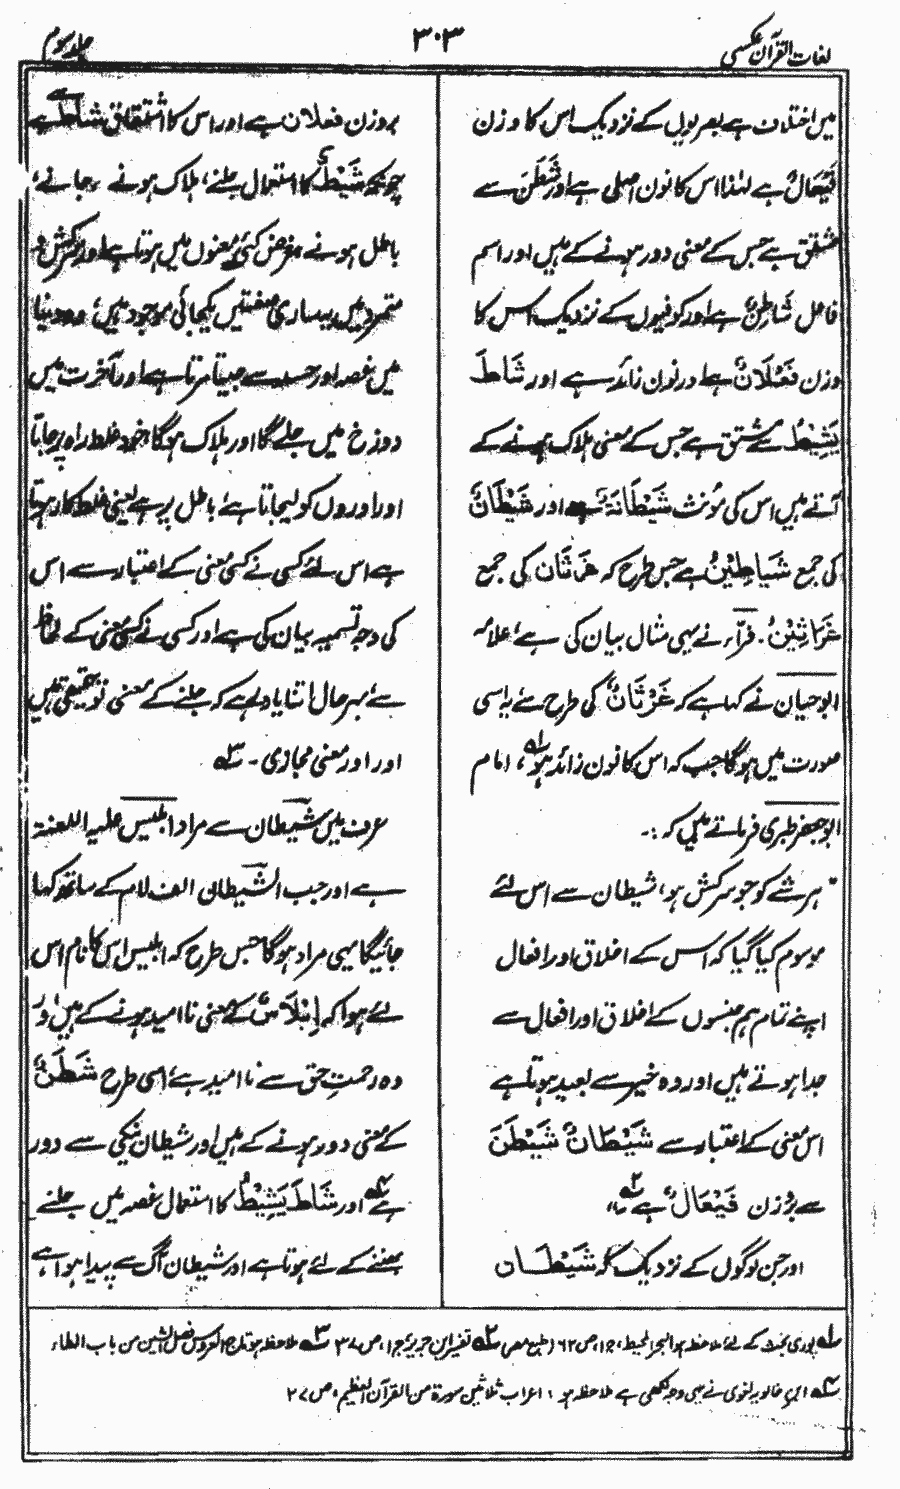 لغات القرآن عکسی
۳۰۳
جلد سوم
میں اختلاف ہے بصریوں کے نزدیک اس کا وزن
فَیْعَالٌ ہے لہٰذا اس کا نون اصلی ہے اور شَطَنَ سے
مشتق ہے جس کے معنی دور ہونے کے ہیں اور اسم
فاعل شَاطِنٌ ہے اور کوفیوں کے نزدیک اس کا
وزن فَعْلَانٌ ہے اور نون زائد ہے اور شَاطَ
یَشِیْطُ سے مشتق ہے جس کے معنی ہلاک ہونے کے
آتے ہیں اس کی مؤنث شَیْطَانَۃٌ ہے اور شَیْطَانٌ
کی جمع شَیَاطِیْنُ ہے جس طرح کہ غَرْثَان کی جمع
غَرَاثِیْنُ۔ فرّاء نے یہی مثال بیان کی ہے، علامہ
ابوحیان نے کہا ہے کہ غَرْثَانٌ کی طرح سے یہ اسی
صورت میں ہوگا جب کہ اس کا نون زائد ہو۱؎، امام
ابوجعفر طبری فرماتے ہیں کہ :۔
" ہر شے کو جو سرکش ہو، شیطان سے اس لئے
موسوم کیا گیا کہ اس کے اخلاق اور افعال
اپنے تمام ہم جنسوں کے اخلاق اور افعال سے
جدا ہوتے ہیں اور وہ خیر سے بعید ہوتا ہے
اس معنی کے اعتبار سے شَیْطَانٌ شَیْطَنَ
سے بروزن فَیْعَالٌ ہے۲؎"
اور جن لوگوں کے نزدیک کہ شَیْطَان
بروزن فعلان ہے اور اس کا اشتقاق شَاطَ سے ہے
چونکہ شَیْطٌ کا استعمال جلنے، ہلاک ہونے، جانے،
باطل ہونے غرض کئی معنوں میں ہوتا ہے اور سرکش و
متمرد میں یہ ساری صفتیں یکجائی موجود ہیں، وہ دنیا
میں غصہ اور حسد سے جیتا مرتا ہے اور آخرت میں
دوزخ میں جلے گا اور ہلاک ہوگا، خود غلط راہ پر جاتا
اور اوروں کو لیجاتا ہے، باطل پر ہے یعنی غلط کار ہوتا
ہے اس لئے کسی نے کسی معنی کے اعتبار سے اس
کی وجہ تسمیہ بیان کی ہے اور کسی نے کسی معنی کے لحاظ
سے، بہر حال اتنا یاد رہے کہ جلنے کے معنی تو حقیقی ہیں
اور اور معنی مجازی ۔۳؎
عرف میں شیطان سے مراد ابلیس علیہ اللعنۃ
ہے اور جب الشیطان الف لام کے ساتھ کہا
جائیگا یہی مراد ہوگا جس طرح کہ ابلیس اس کا نام اس
لئے ہوا کہ اِبْلَاسٌ کے معنی نا امید ہونے کے ہیں، اور
وہ رحمتِ حق سے نا امید ہے، اسی طرح شَطَنٌ
کے معنی دور ہونے کے ہیں اور شیطان نیکی سے دور
ہے۴؎ اور شَاطَ یَشِیْطُ کا استعمال غصہ میں جلنے
بھننے کے لئے ہوتا ہے اور شیطان آگ سے پیدا ہوا ہے،
۱؎ پوری بحث کے لئے ملاحظہ ہو البحر المحیط، ج۱، ص ۶۲ (طبع مصر) ۲؎ تفسیر ابن جریر، ج۱، ص ۳۷ ۳؎ ملاحظہ ہو تاج العروس فصل الشین من باب الطاء
۴؎ ابن خالویہ لغوی نے یہی وجہ لکھی ہے ملاحظہ ہو : اعراب ثلاثین سورۃ من القرآن العظیم، ص ۲۷